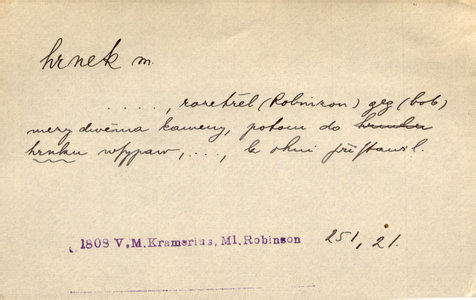 hrnek m.
. . . . ., rozetřel (Robinzon) geg (bob)
mezy dwěma kameny, potom do hrnku
hrnku wsypaw, . . ., k ohni přistawil.
1808 V. M. Kramerius, Ml. Robinson 251, 21.